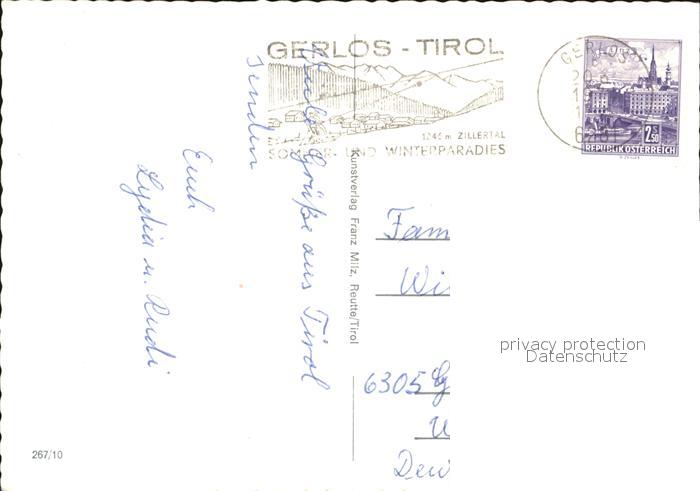 GERLOS - TIROL
1246 m ZILLERTAL
SOMMER- UND WINTERPARADIES
GERLOS
2 S 50
REPUBLIK ÖSTERREICH
Viele Grüße aus Tirol
senden
Euch
Lydia u. Rudi
Kunstverlag Franz Milz, Reutte/Tirol
Fam
Wi
6305 G
privacy protection
Datenschutz
267/10